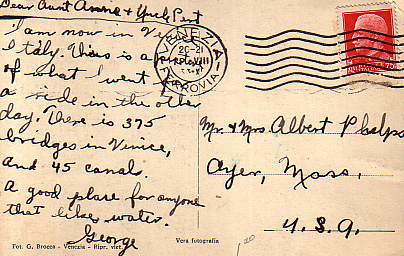 Dear Aunt Anna & Uncle Pert
I am now in Venice
Italy. This is a
of what I went for
a ride in the other
day. There is 375
bridges in Venice,
and 45 canals.
A good place for anyone
that likes water.
George
VENEZIA
20-21
FERROVIA
Mr. & Mrs. Albert Phelps
Ayer, Mass.
U.S.A.
Fot. G. Brocca - Venezia - Ripr. viet.
Vera fotografia